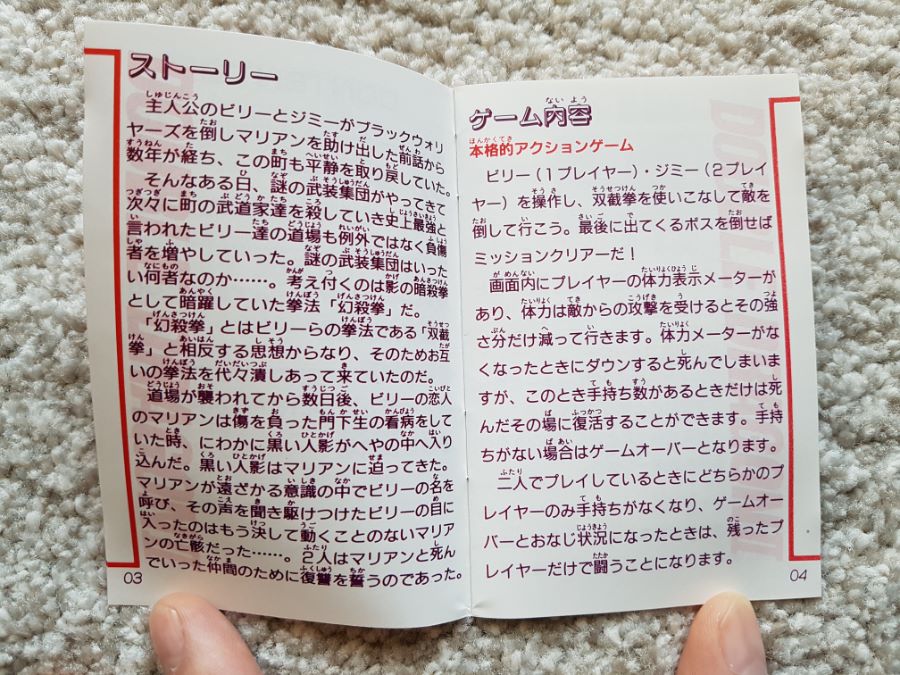 ストーリー
主人公のビリーとジミーがブラックウォリ
ヤーズを倒しマリアンを助け出した前話から
数年が経ち、この町も平静を取り戻していた。
そんなある日、謎の武装集団がやってきて
次々に町の武道家達を殺していき史上最強と
言われたビリー達の道場も例外ではなく負傷
者を増やしていった。謎の武装集団はいった
い何者なのか……。考え付くのは影の暗殺拳
として暗躍していた拳法「幻殺拳」だ。
「幻殺拳」とはビリーらの拳法である「双截
拳」と相反する思想からなり、そのためお互
いの拳法を代々潰しあって来ていたのだ。
道場が襲われてから数日後、ビリーの恋人
のマリアンは傷を負った門下生の看病をして
いた時、にわかに黒い人影がへやの中へ入り
込んだ。黒い人影はマリアンに迫ってきた。
マリアンが遠ざかる意識の中でビリーの名を
呼び、その声を聞き駆けつけたビリーの目に
入ったのはもう決して動くことのないマリア
ンの亡骸だった……。2人はマリアンと死ん
でいった仲間のために復讐を誓うのであった。
03
ゲーム内容
本格的アクションゲーム
ビリー(1プレイヤー)・ジミー(2プレイ
ヤー)を操作し、双截拳を使いこなして敵を
倒して行こう。最後に出てくるボスを倒せば
ミッションクリアーだ!
画面内にプレイヤーの体力表示メーターが
あり、体力は敵からの攻撃を受けるとその強
さ分だけ減って行きます。体力メーターがな
くなったときにダウンすると死んでしまいま
すが、このとき手持ち数があるときだけは死
んだその場に復活することができます。手持
ちがない場合はゲームオーバーとなります。
二人でプレイしているときにどちらかのプ
レイヤーのみ手持ちがなくなり、ゲームオー
バーとおなじ状況になったときは、残ったプ
レイヤーだけで闘うことになります。
04